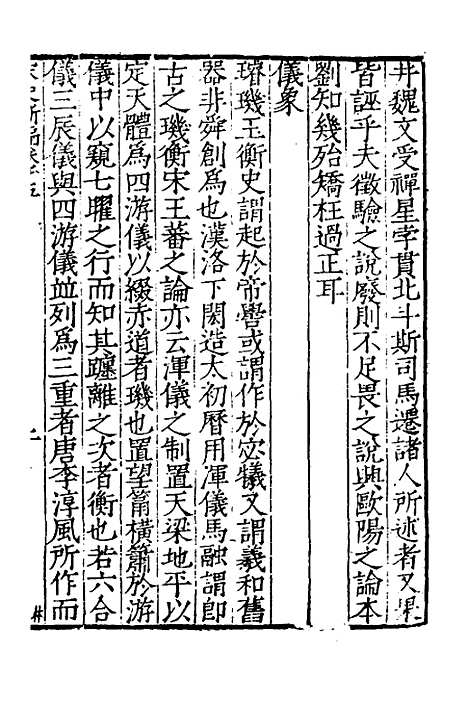 井魏文受禪星孛貫北斗斯司馬遷諸人所述者又果
皆誣乎夫徵驗之說廢則不足畏之說與歐陽之論本
劉知幾殆矯枉過正耳
儀象
璿璣玉衡史謂起於帝嚳或謂作於宓犧又謂羲和舊
器非舜創為也漢洛下閎造太初曆用渾儀馬融謂即
古之璣衡宋王蕃之論亦云渾儀之制置天梁地平以
定天體為四游儀以綴赤道者璣也置望筩橫簫於游
儀中以窺七曜之行而知其躔離之次者衡也若六合
儀三辰儀與四游儀並列為三重者唐李淳風所作而